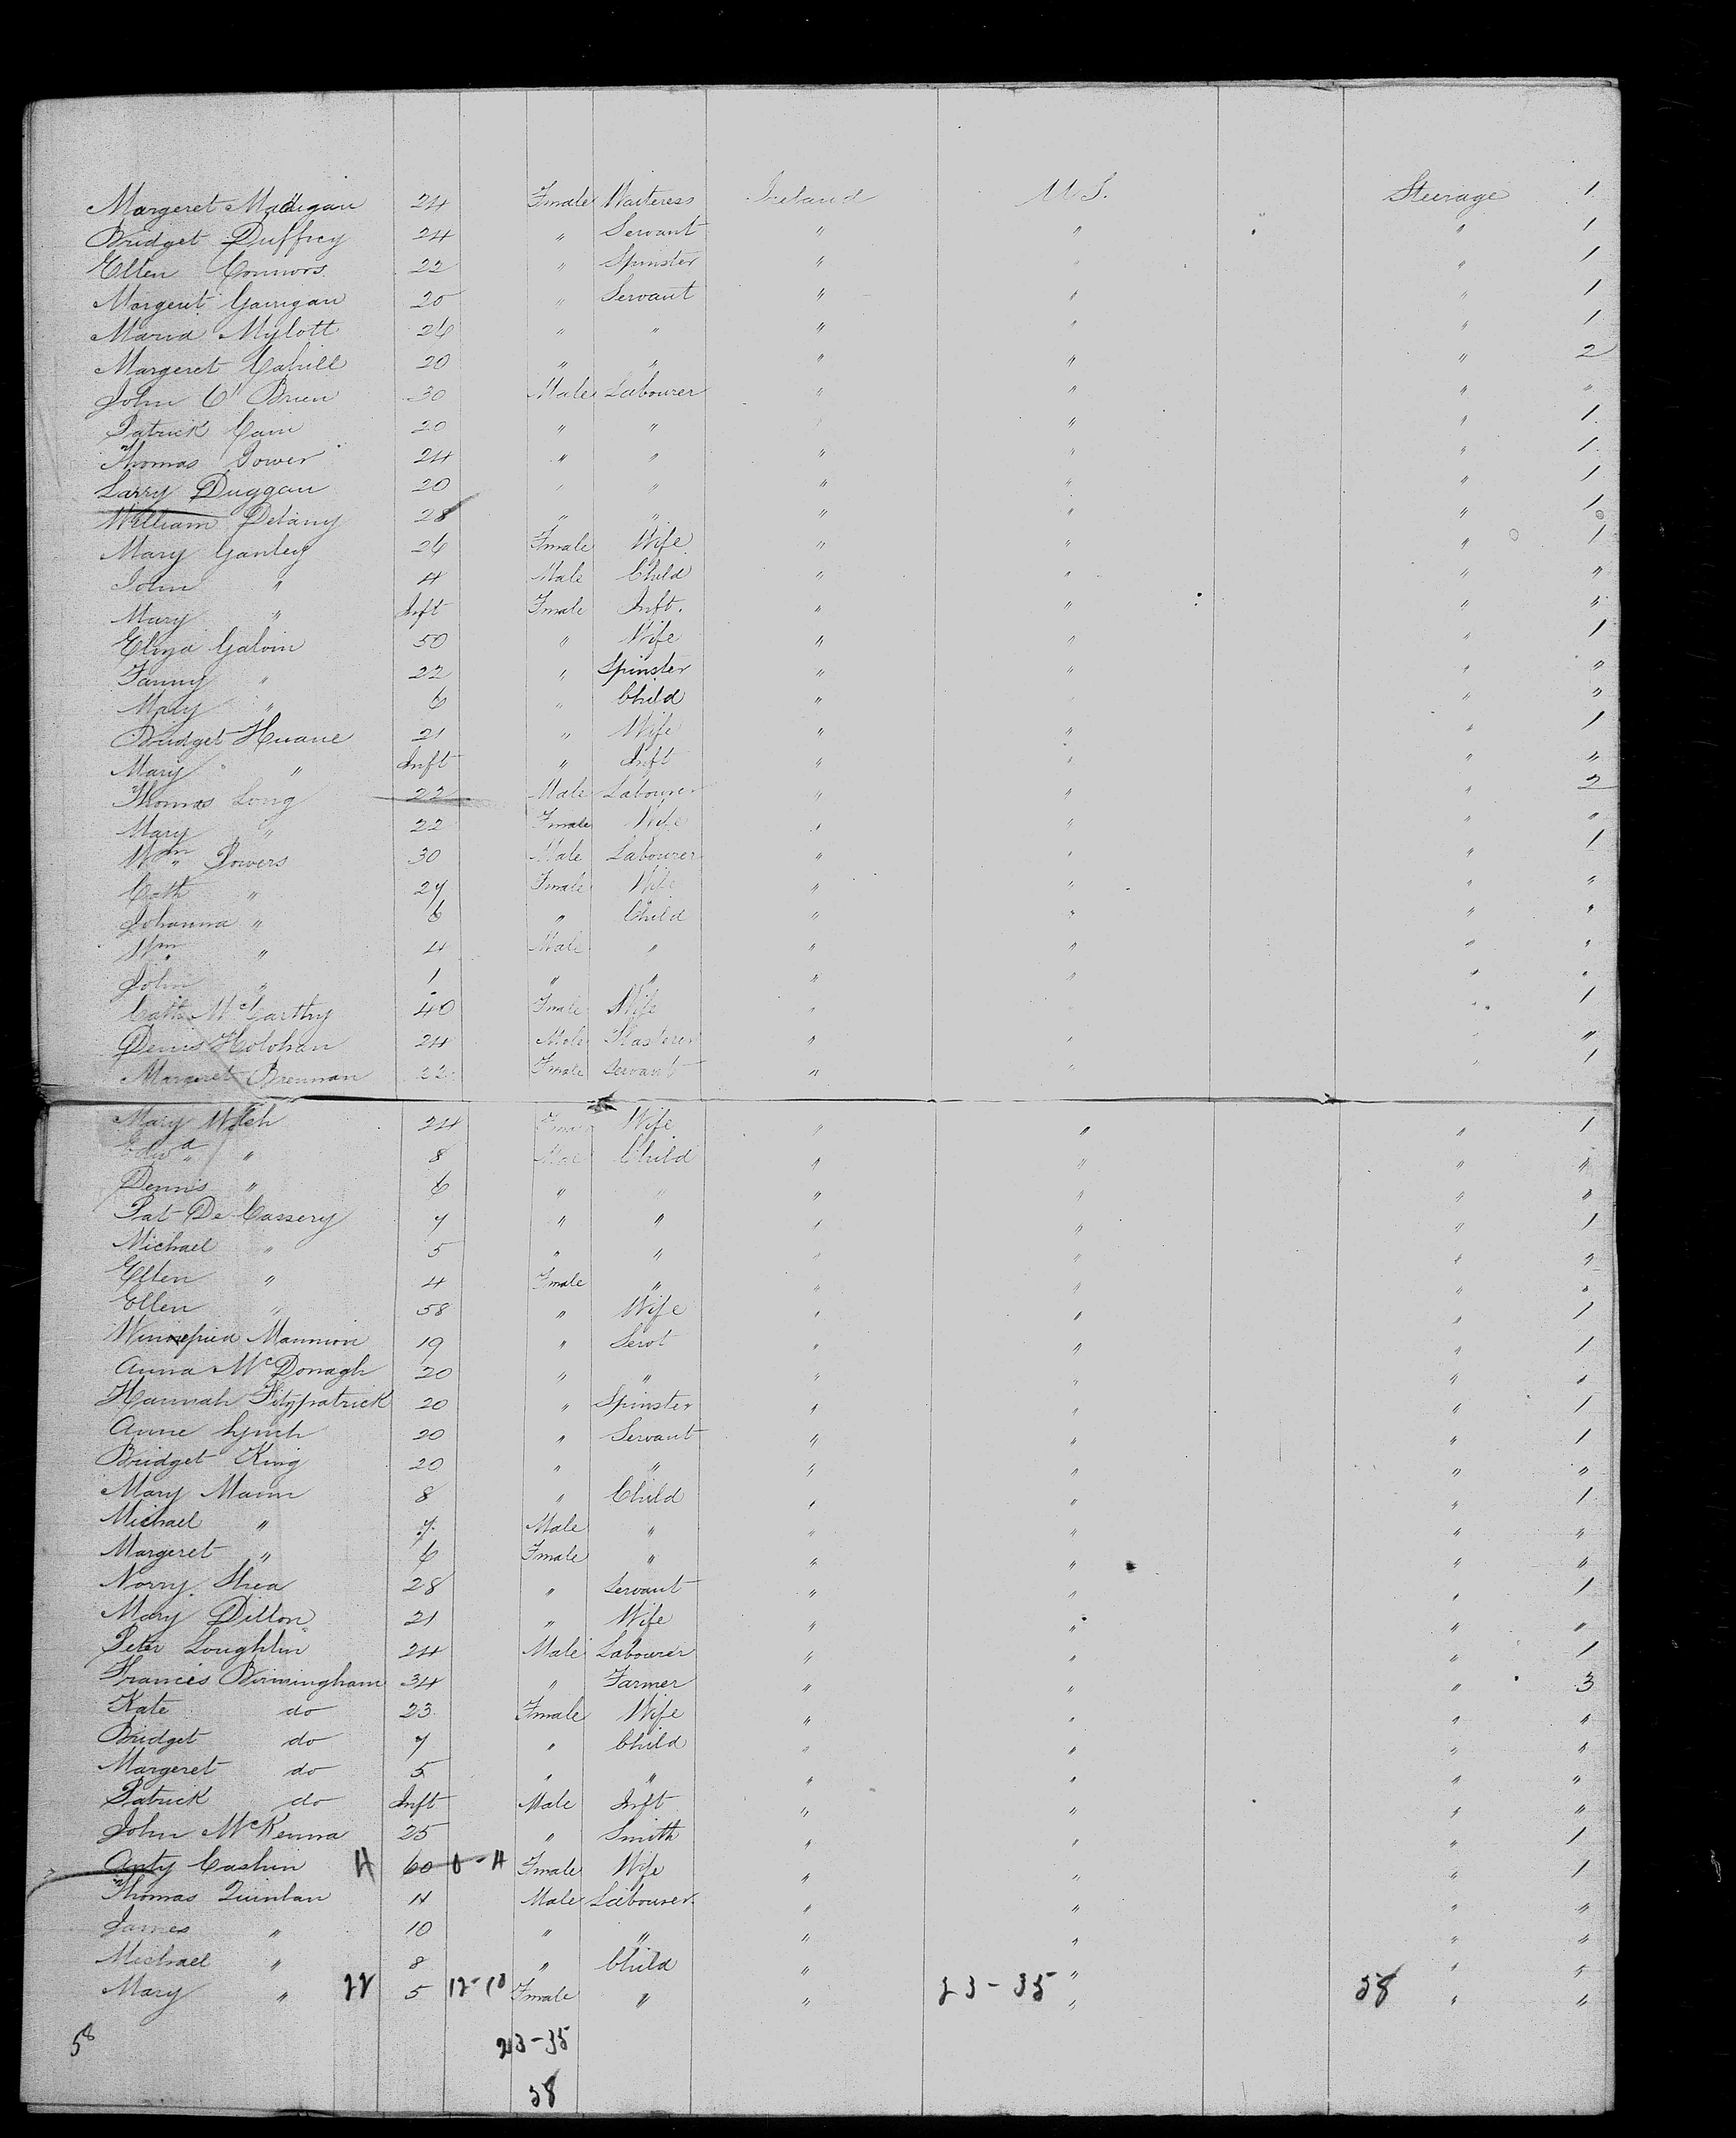 Margeret Madigan 24 Fmale Waiteress Ireland U.S. Steurage 1
Bridget Duffiey 24 " Servant " " " 1
Ellen Connors 22 " Spinster " " 1
Margeret Garrigan 20 " Servant " " " 1
Maria Mylott 26 " " " " " 1
Margeret Cahill 20 " " " " " 2
John O'Brien 30 Male Labourer " " " "
Patrick Cain 20 " " " " 1
Thomas Power 24 " " " " " 1
Larry Duggan 20 " " " " " 1
William Delany 28 " " " " " 1
Mary Ganley 26 Fmale Wife " " " 1
John " 4 Male Child " " " "
Mary " Inft Fmale Inft. " " " "
Eliza Galvin 50 " Wife " " " 1
Fanny " 22 " Spinster " " " "
Mary " 6 " Child " " "
Bridget Huane 21 " Wife " " " 1
Mary " Inft " Inft " " " "
Thomas Long 22 Male Labourer " " " 2
Mary " 22 Fmale Wife " " " "
Wm Powers 30 Male Labourer " " " 1
Cath " 27 Fmale Wife " " " "
Johanna " 6 " Child " " " "
Wm " 4 Male " " " " "
John " 1 " " " " " "
Cath McCarthy 40 Fmale Wife " " 1
Denis Holohan 24 Male Plasterer " " " "
Margeret Brennan 22 Fmale Servant " " " 1
Mary Welch 24 Fmale Wife " " " 1
Edwd " 8 Male Child " " " "
Dennis " 6 " " " " " "
Pat De Cassery 7 " " " " " 1
Michael " 5 " " " " " "
Ellen " 4 Fmale " " " " "
Ellen " 58 " Wife " " " 1
Winnefried Mannion 19 " Servt " " " 1
Anna McDonagh 20 " " " " " "
Hannah Fitzpatrick 20 " Spinster " " " 1
Anne Lynch 20 " Servant " " " 1
Bridget King 20 " " " " " "
Mary Mann 8 " Child " " " 1
Michael " 7 Male " " " " "
Margeret " 6 Fmale " " " " "
Norry Shea 28 " Servant " " " 1
Mary Dillon 21 " Wife " " " "
Peter Loughlin 24 Male Labourer " " " 1
Francis Birmingham 34 " Farmer " " " 3
Kate do 23 Fmale Wife " " " "
Bridget do 7 " Child " " " "
Margeret do 5 " " " " " "
Patrick do Inft Male Inft " " " "
John McKenna 25 " Smith " " " 1
Anty Cashin 60 Fmale Wife " " " 1
Thomas Quinlan 11 Male Labourer " " " "
James " 10 " " " " " "
Michael " 8 " Child " " " "
Mary " 22 5 12-10 Fmale " " 23-35 " 58 " "
58 23-35
58